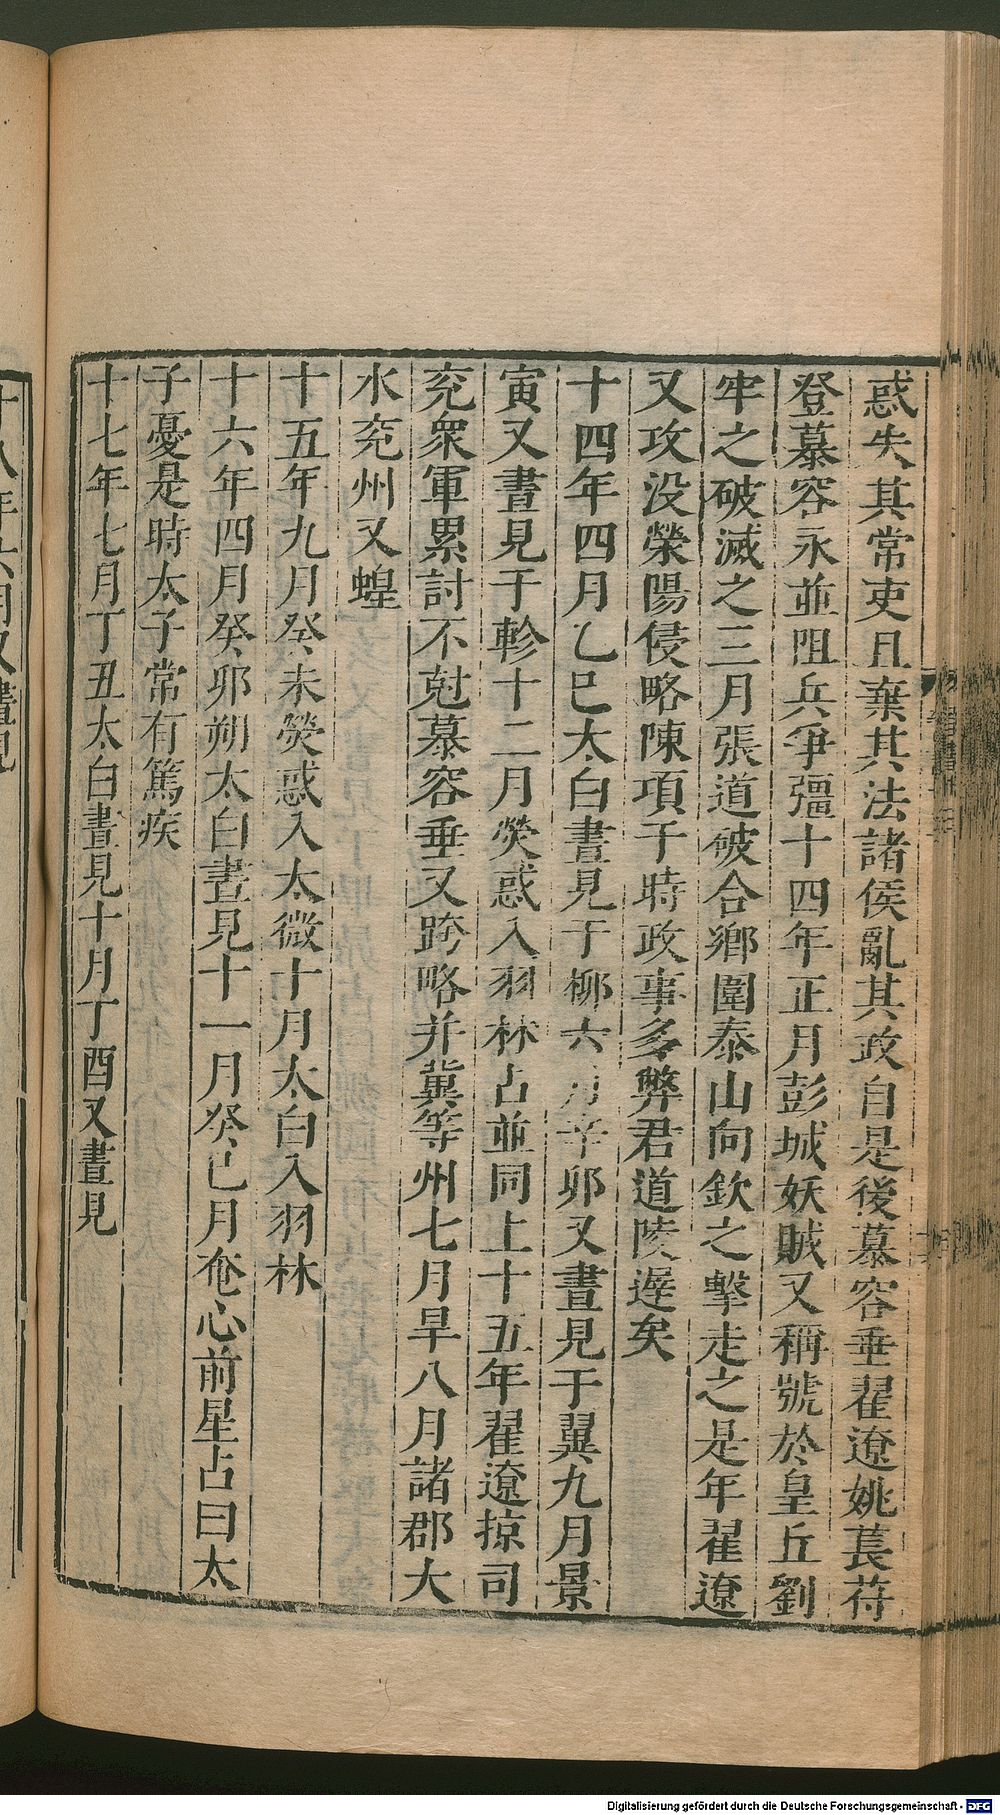 惑失其常吏且棄其法諸侯亂其政自是後慕容垂翟遼姚萇苻
登慕容永並阻兵爭彊十四年正月彭城妖賊又稱號於皇丘劉
牢之破滅之三月張道破合鄉圍泰山向欽之擊走之是年翟遼
又攻没滎陽侵略陳項于時政事多弊君道陵遲矣
十四年四月乙巳太白晝見于柳六月辛卯又晝見于翼九月景
寅又晝見于軫十二月熒惑入羽林占並同上十五年翟遼掠司
兖衆軍累討不尅慕容垂又跨略并冀等州七月旱八月諸郡大
水兖州又蝗
十五年九月癸未熒惑入太微十月太白入羽林
十六年四月癸卯朔太白晝見十一月癸巳月奄心前星占曰太
子憂是時太子常有篤疾
十七年七月丁丑太白晝見十月丁酉又晝見
十八年六月又晝見
Digitalisierung gefördert durch die Deutsche Forschungsgemeinschaft - DFG